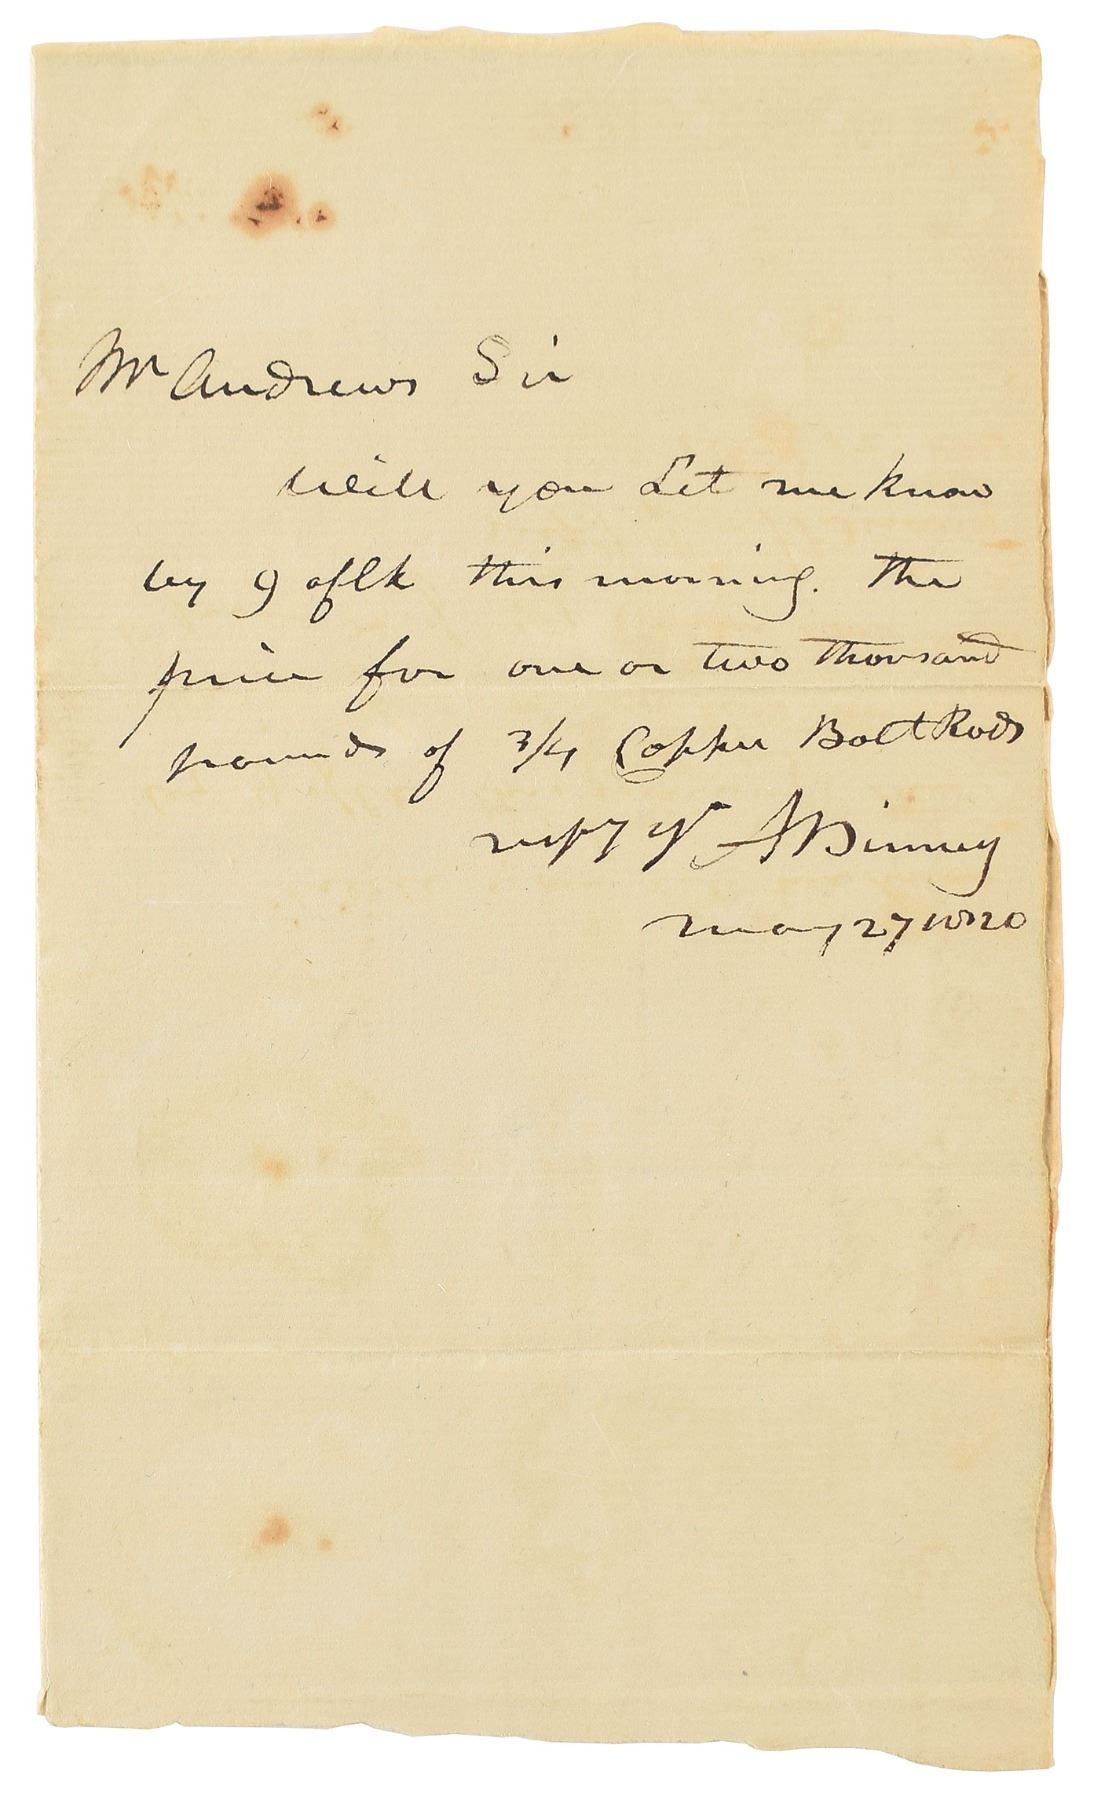 Mr Andrews Sir
Will you Let me know
by 9 oClk this morning. the
price for one or two thousand
pounds of 3/4 Copper Bolt Rods
respy yr A Binney
May 27 1820